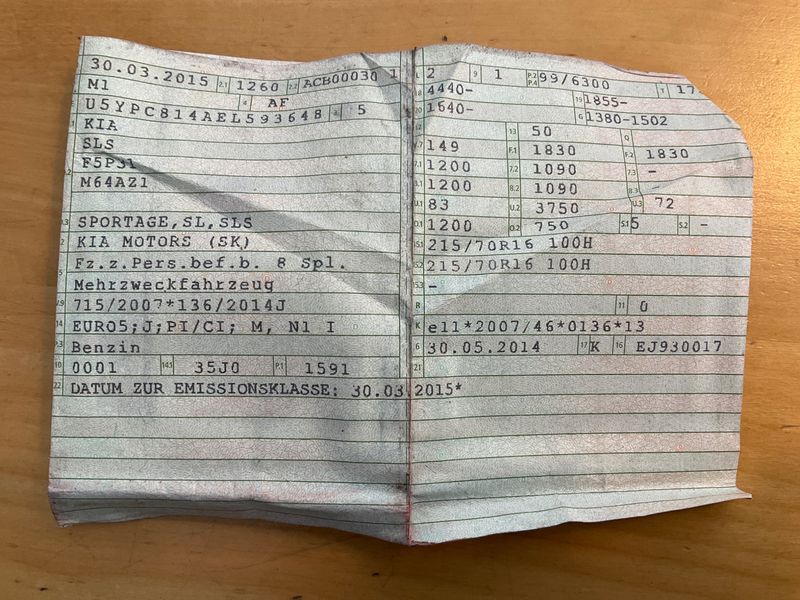 30.03.2015 2.1 1260 2.2 ACB00030 1
M1 4 AF
U5YPC814AEL593648 5
KIA
SLS
F5P31
M64AZ1
SPORTAGE,SL,SLS
KIA MOTORS (SK)
Fz.z.Pers.bef.b. 8 Spl.
Mehrzweckfahrzeug
715/2007*136/2014J
14 EURO5;J;PI/CI; M, N1 I
P.3 Benzin
10 0001 14.1 35J0 P.1 1591
22 DATUM ZUR EMISSIONSKLASSE: 30.03.2015*
L 2 9 1 P.2 P.4 99/6300 T 17
18 4440- 19 1855-
20 1640- G 1380-1502
12 13 50 Q
V.7 149 F.1 1830 F.2 1830
7.1 1200 7.2 1090 7.3 -
8.1 1200 8.2 1090 8.3 -
U.1 83 U.2 3750 U.3 72
O.1 1200 O.2 750 S.1 5 S.2 -
15.1 215/70R16 100H
15.2 215/70R16 100H
15.3 -
R 11 0
K e11*2007/46*0136*13
6 30.05.2014 17 K 16 EJ930017
21